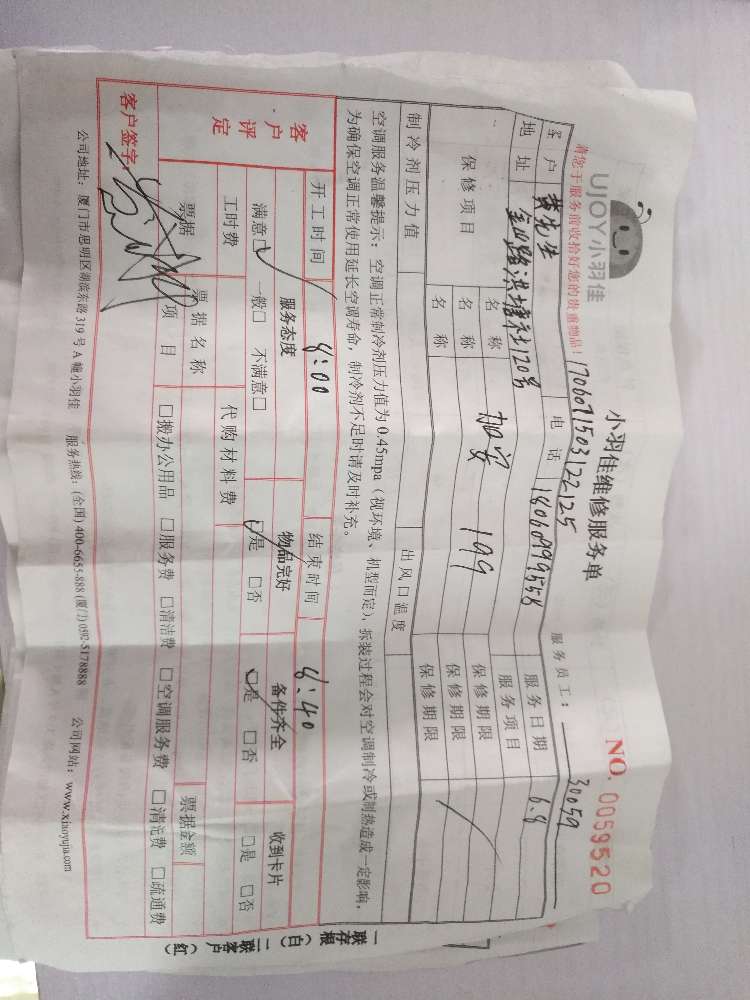 UJOY小羽佳
小羽佳维修服务单
NO. 0059520
请您于服务前收拾好您的贵重物品!
170607150312212​5
服务员工: 30059
客户 黄先生 电话 18060999558 服务日期 6.8
地址 金山路洪塘社120号 服务项目
保修项目 名称 加安 199 保修期限
名称 保修期限
名称 保修期限
制冷剂压力值 出风口温度
空调服务温馨提示: 空调正常制冷剂压力值为 0.45mpa (视环境、机型而定), 拆装过程会对空调制冷或制热造成一定影响,
为确保空调正常使用延长空调寿命, 制冷剂不足时请及时补充。
客户评定 开工时间 8:00 结束时间 8:40
服务态度 物品完好 备件齐全 收到卡片
满意☑ 一般□ 不满意□ ☑是 □否 ☑是 □否 □是 □否
工时费 代购材料费
票据 票据名称 票据金额
项目 □搬办公用品 □服务费 □清洁费 □空调服务费 □清洗费 □疏通费
客户签字:
公司地址: 厦门市思明区湖滨东路 319 号 A 幢小羽佳 服务热线: (全国) 400-6655-888 (厦门) 0592-5178888 公司网站: www.xiaoyujia.com
一联存根(白) 二联客户(红)